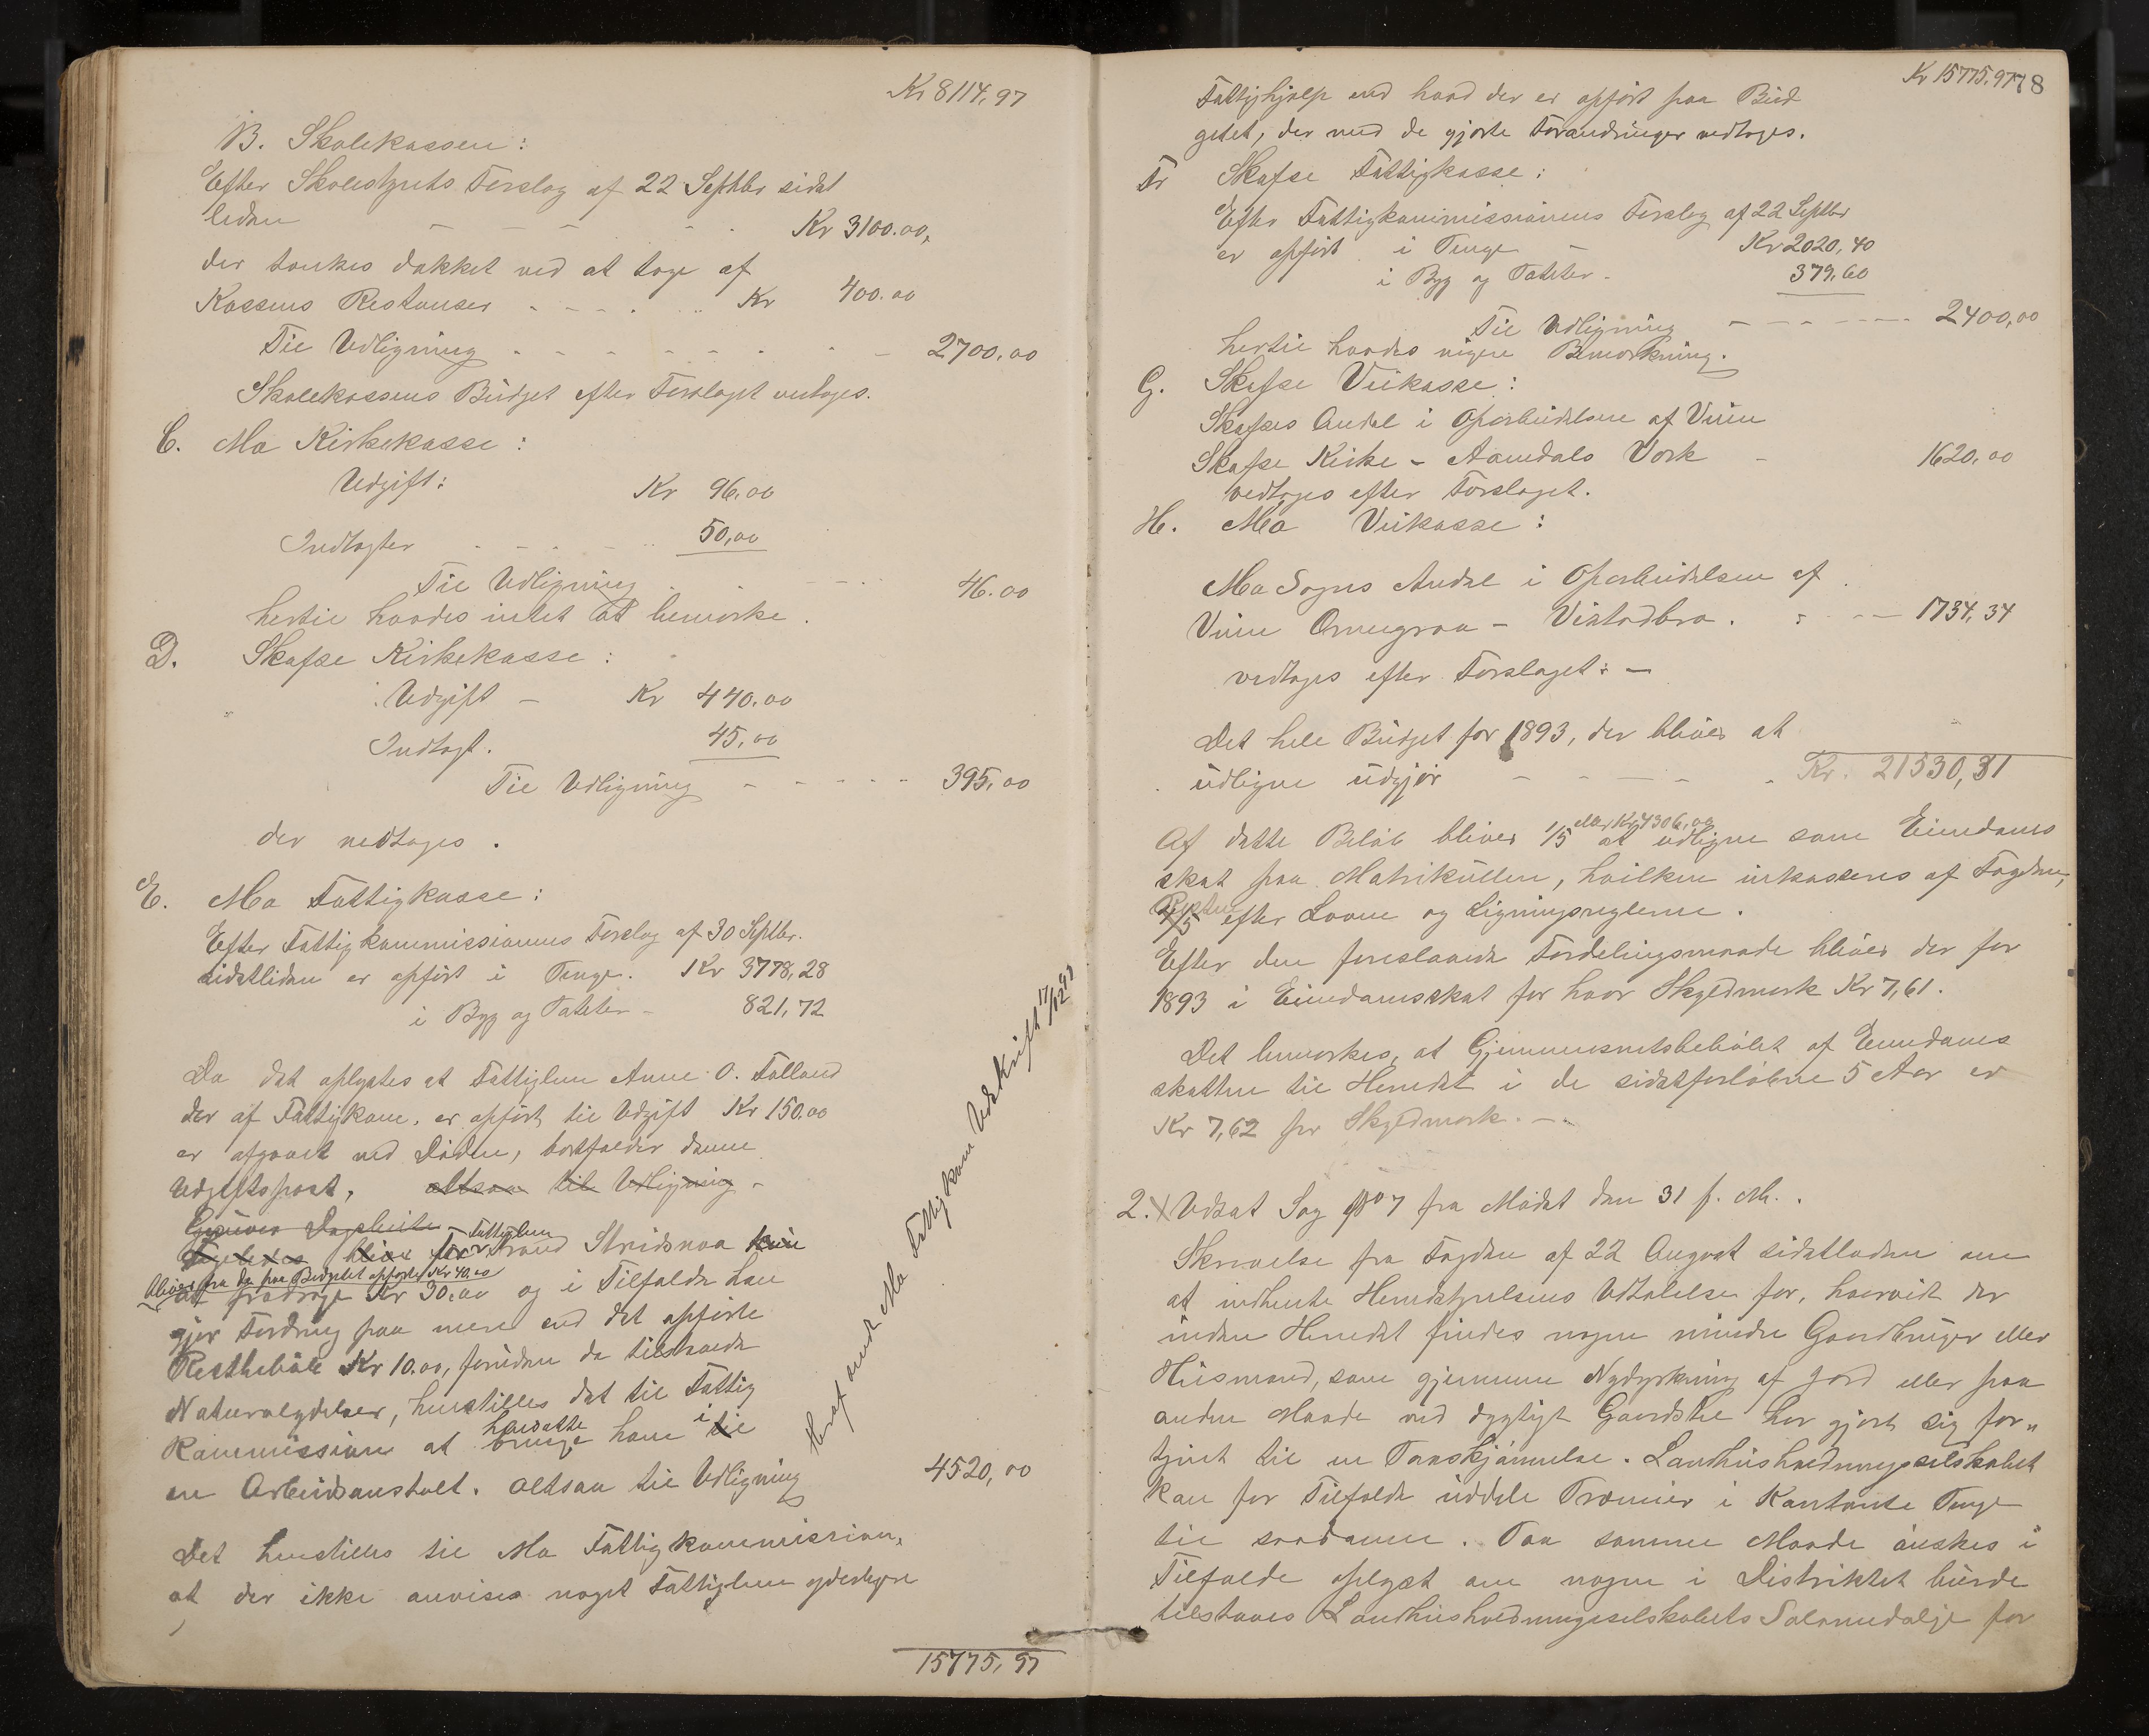 Kr 8114,97
B. Skolekassen:
Efter Skolestyrets Forslag af 22 Septbr sidst
leden - - - - Kr 3100.00,
der tænkes dækket ved at tage af
Kassens Restanser - - - - Kr 400.00
Til Udligning - - - - - - - 2700,00
Skolekassens Budget efter Forslaget vedtages.
C. Mo Kirkekasse:
Udgift: Kr 96,00
Indtægter - - - - 50,00
Til Udligning - - - 46.00
hertil havdes intet at bemærke.
D. Skafse Kirkekasse:
Udgift - Kr 440.00
Indtægt. 45,00
Til Udligning - - - - - 395,00
der vedtages.
E. Mo Fattigkasse:
Efter Fattigkommissionens Forslag af 30 Septbr.
sidstleden er opført i Penge. Kr 3778,28
i Byg og Poteter - 821,72
Da det oplystes at Fattiglem Anne O. Folland
der af Fattigkom. er opført til Udgift Kr 150.00
er afgaaet ved Døden, bortfalder denne
Udgiftspost, altsaa til Udligning -
Fattiglem
bliver for Trond Stridsraa
bliver fra de paa Budgetet opførte Kr 40.00
at fradrage Kr 30.00 og i Tilfælde han
gjør Fordring paa mere end det opførte
Restbeløb Kr 10.00, foruden de tilstaaede
Naturalydelser, henstilles det til Fattig
hensætte i
kommission at bringe ham til
en Arbeidsanstalt. altsaa til Udligning 4520,00
Det henstilles til Mo Fattigkommission,
at der ikke anvises noget Fattiglem yderligere
15775,97
heraf sendt Mo Fattigkom Udskrift 17/12 92
Kr 15775.97 78
Fattighjælp end hvad der er opført paa Bud
getet, der med de gjorte Forandringer vedtoges.
F. Skafse Fattigkasse:
Efter Fattigkommissionens Forslag af 22 Septbr
er opført i Penge - Kr 2020,40
i Byg og Poteter - 379,60
Til Udligning - - - - - 2400,00
hertil havdes ingen Bemærkning.
G. Skafse Veikasse:
Skafses Andel i Oparbeidelsen af Veien
Skafse Kirke - Aamdals Værk - 1620,00
vedtages efter Forslaget.
H. Mo Veikasse:
Mo Sogns Andel i Oparbeidelsen af
Veien Ormegraa - Vistadbro. - - - 1734,34
vedtages efter Forslaget: -
Det hele Budget for 1893, der bliver at
udligne udgjør - - - - Kr. 21530,31
eller Kr 4306,00
Af dette Beløb bliver 1/5 at udligne som Eiendoms
skat paa Matrikullen, hvilken inkasseres af Fogden,
Resten
4/5 efter Loven og Ligningsreglerne.
Efter den foreslaaede Fordelingsmaade bliver der for
1893 i Eiendomsskat for hver Skyldmark Kr 7,61.
Det bemærkes, at Gjennemsnitsbeløbet af Eiendoms
skatten til Herredet i de sidstforløbne 5 Aar er
Kr 7,62 pr Skyldmark. -
2. Udsat Sag No 7 fra Mødet den 31 f. M.
Skrivelse fra Fogden af 22 August sidstleden om
at indhente Herredstyrelsens Udtalelse for, hvorvidt der
inden Herredet findes nogen mindre Gaardbruger eller
Husmand, som gjennem Nydyrkning af Jord eller paa
anden Maade ved dygtigt Gaardstel har gjort sig for„
tjent til en Paaskjønnelse. Landhusholdningsselskabet
kan for Tilfælde uddele Præmier i Kontante Penge
til saadanne. Paa samme Maade ønskes i
Tilfælde oplyst om nogen i Distriktet burde
tilstaaes Landhusholdningsselskabets Sølvmedalje for